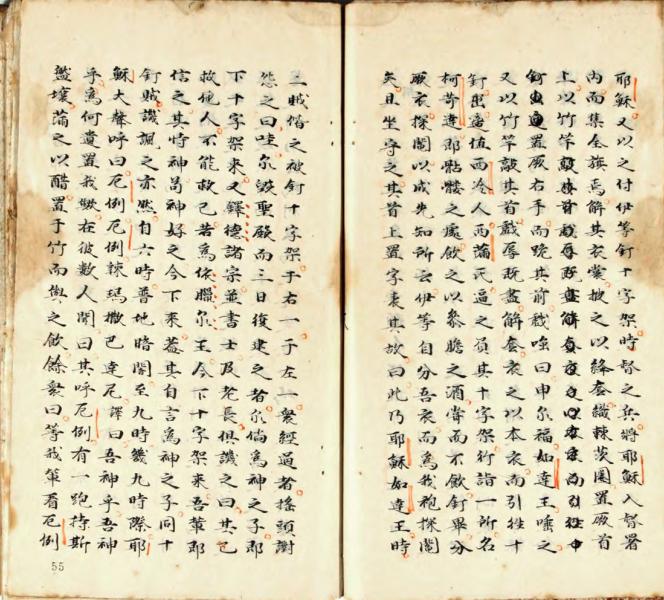 耶穌又以之付伊等釘十字架時督之兵將耶穌入督署
內而集全旅焉解其衣裳披之以絳套織棘茨圈置厥首
上以竹竿
置厥右手而跪其前戲嗤曰申尔福如達王唾之
又以竹竿敲其首戲辱既盡解套衣之以本衣而引牲十
釘出邉值西冷人西蒲氏逼之負其十字架行詣一所名
柯苛達即骷髏之處飲之以參膽之酒甞而不飲釘畢分
厥衣探鬮以成先知所云伊等自分吾衣而爲我袍探鬮
矣且坐守之其首上置字表其故曰此乃耶穌如達王時
二賊偕之被釘十字架于右一于左一衆經過者搖頭謝
怨之曰哇尔毀聖殿而三日復建之者尔倘爲神之子即
下十字架來又鐸德諸宗並書士及老長俱譏之曰其已
救他人不能救己若爲依臘尔王今下十字架來吾輩即
信之其恃神若神好之今下來葢其自言爲神之子同十
釘賊譏諷之亦然自六時普地暗闇至九時幾九時際耶
穌大聲呼曰厄例厄例棘瑪撒巴達尼譯曰吾神乎吾神
乎爲何遺置我歟在彼數人聞曰其呼厄例有一跑持斯
盤壤蒲之以醋置于竹而與之飲餘衆曰等我輩看厄例
55